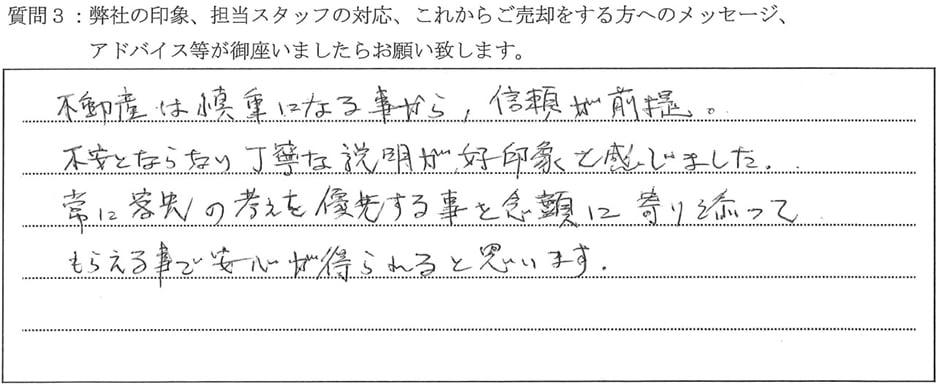 質問3：弊社の印象、担当スタッフの対応、これからご売却をする方へのメッセージ、
アドバイス等が御座いましたらお願い致します。
不動産は慎重になる事から，信頼が前提。
不安とならない丁寧な説明が好印象と感じました．
常に客先の考えを優先する事を念頭に寄り添って
もらえる事で安心が得られると思います．